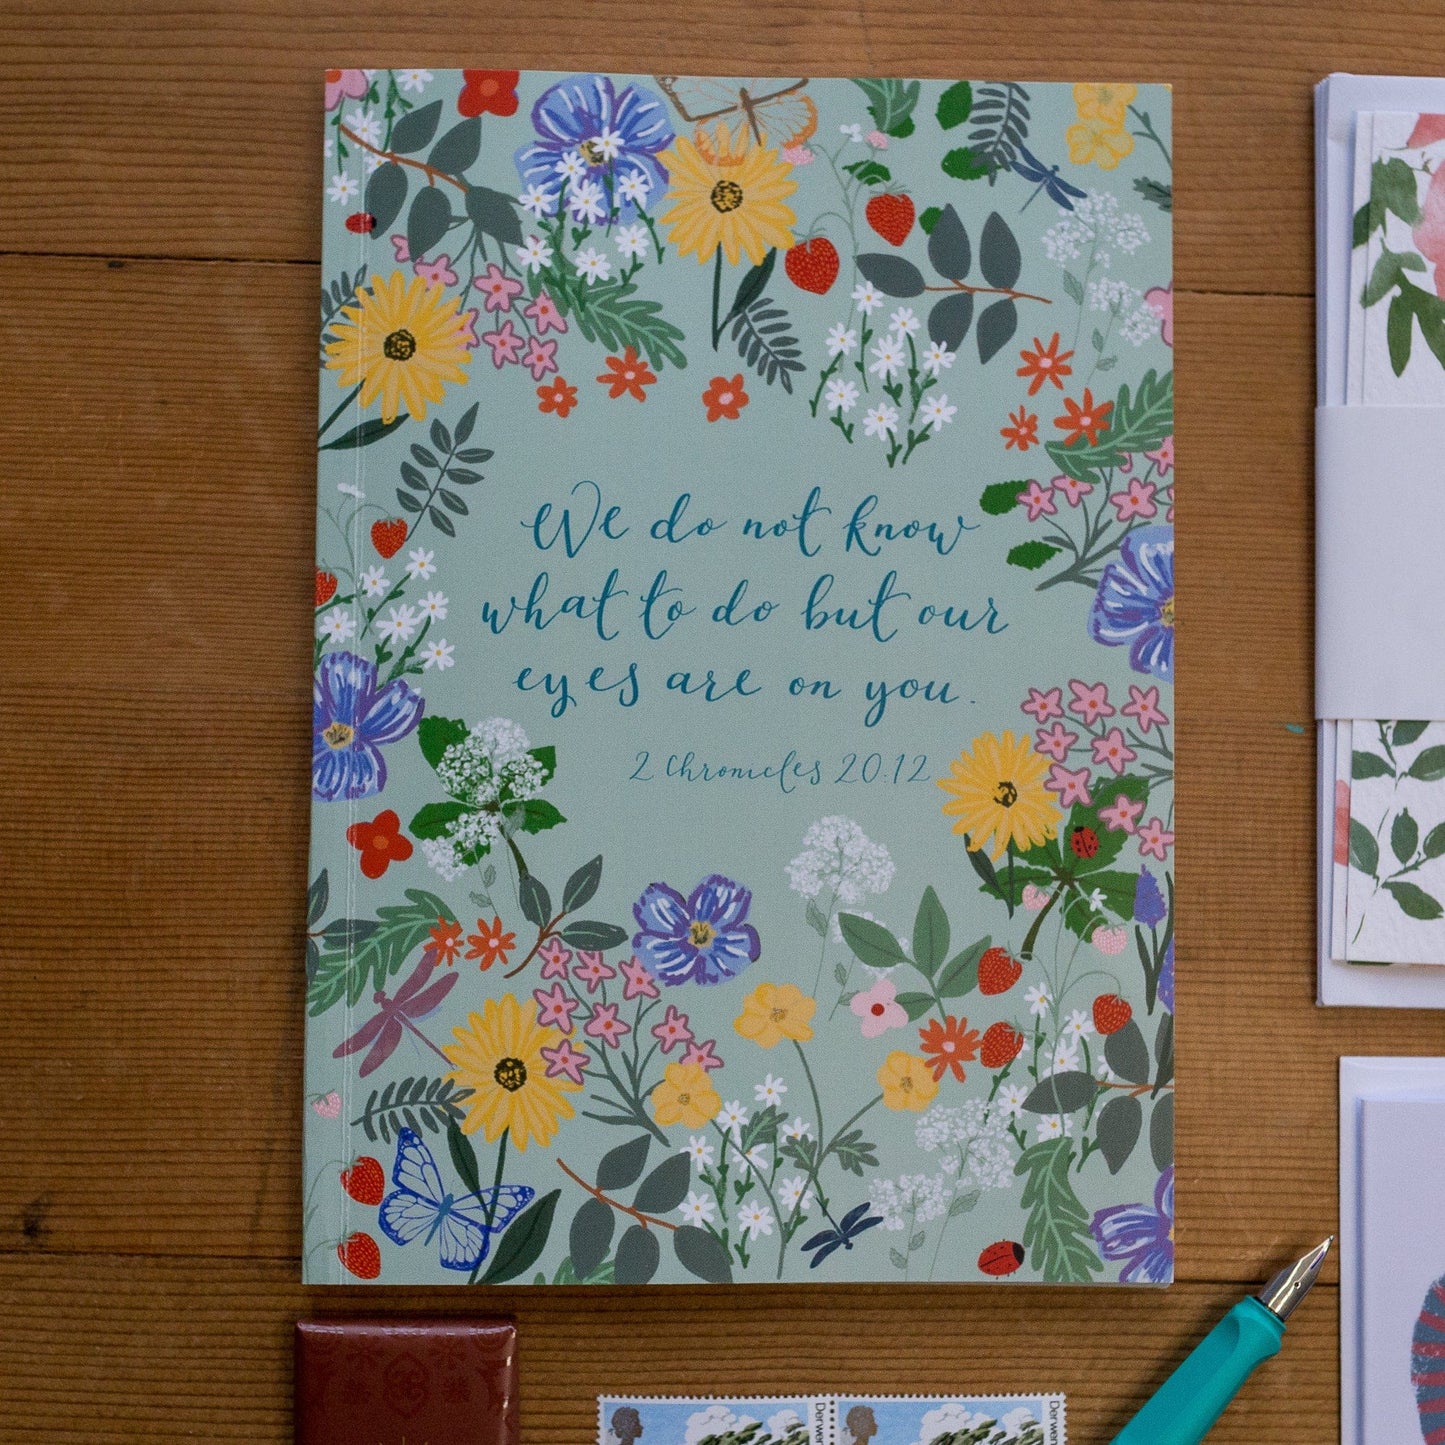 We do not know
what to do but our
eyes are on you.
2 Chronicles 20.12
Derwen
Derwen